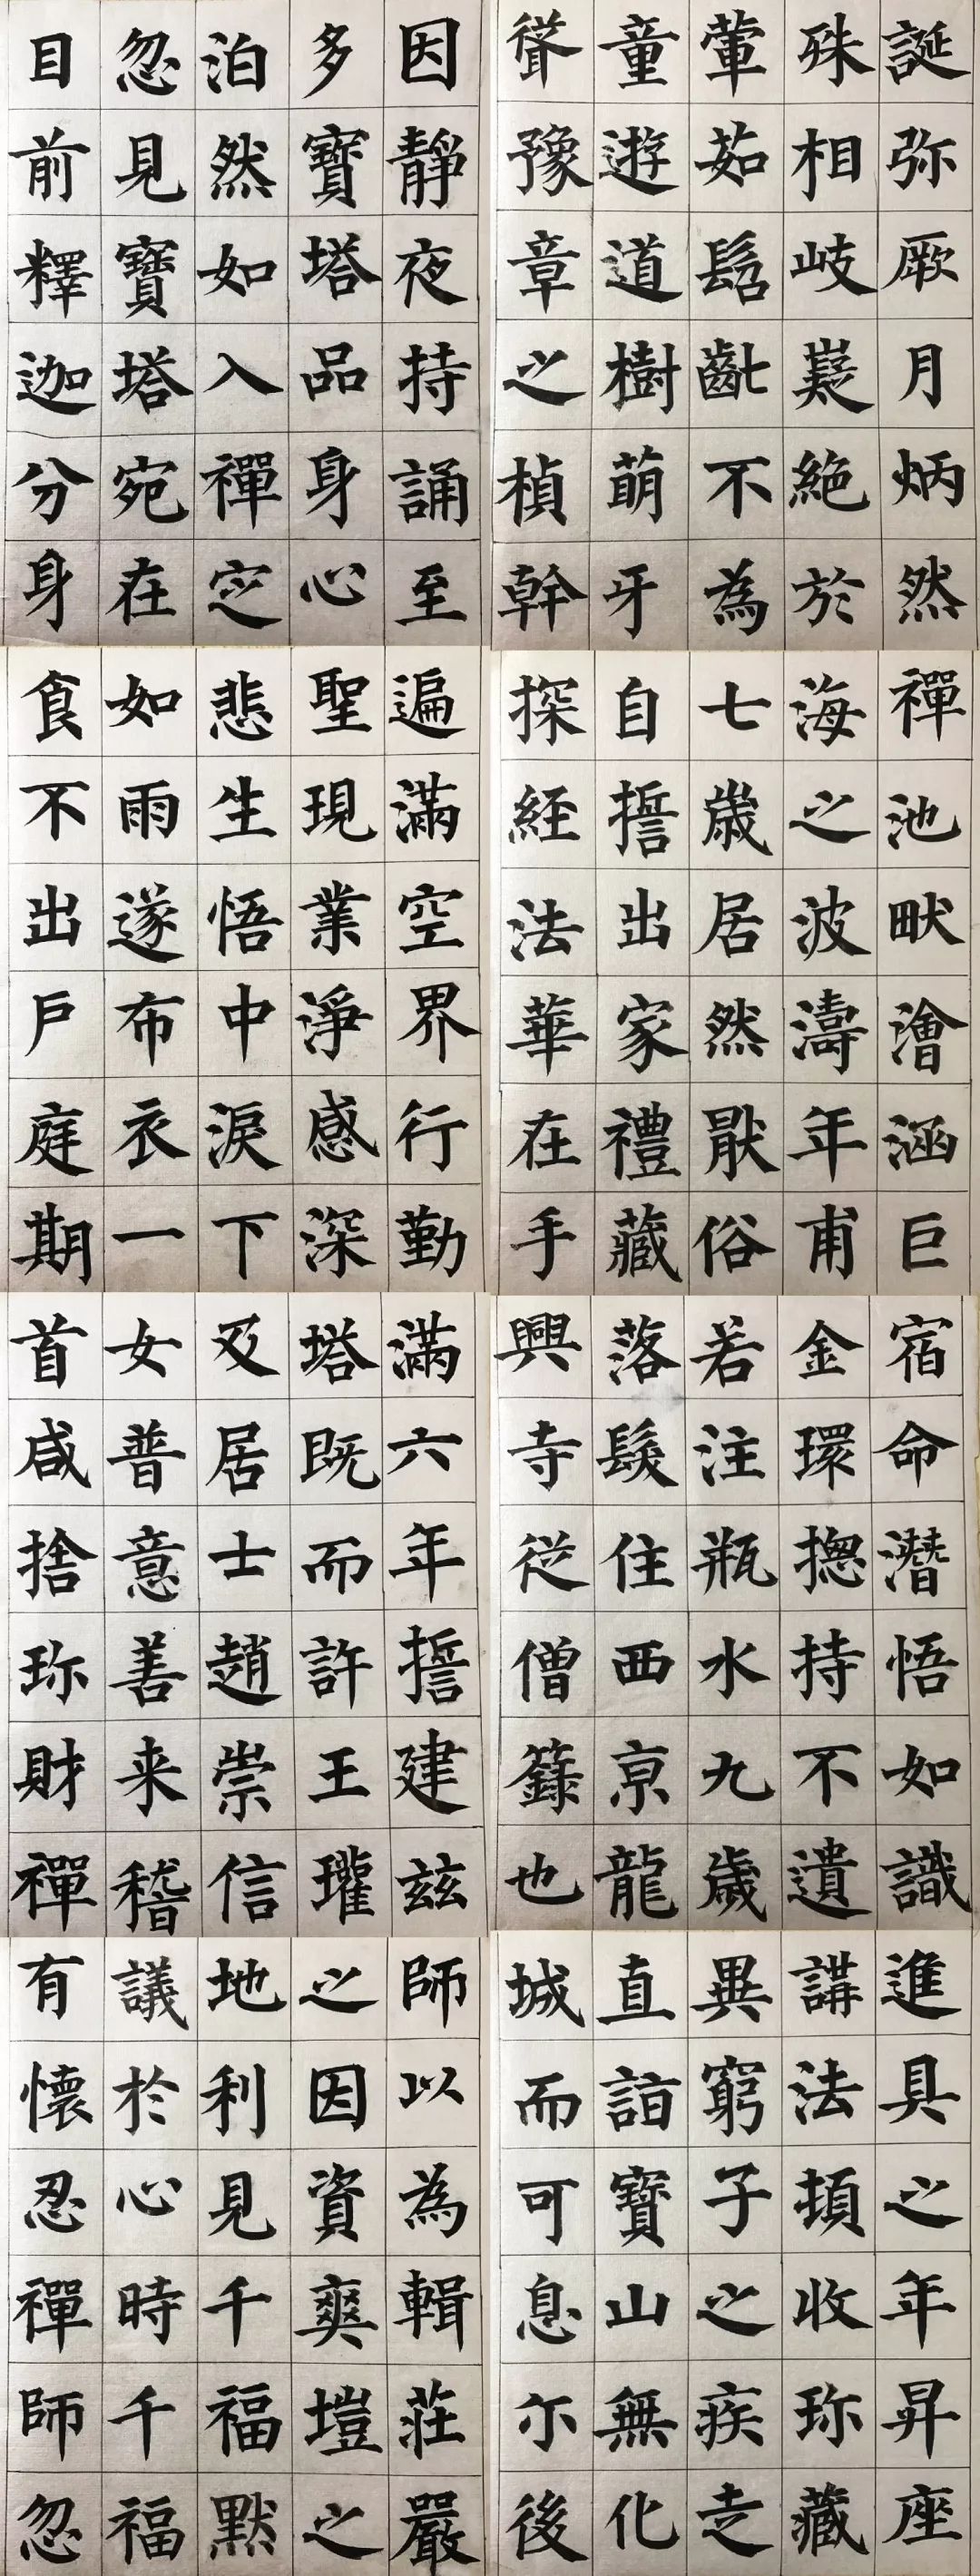 誕弥厥月炳然
殊相岐嶷絶於
葷茹髫齔不為
童遊道樹萌牙
聳豫章之楨幹
禪池畎澮涵巨
海之波濤年甫
七歲居然猒俗
自誓出家禮藏
探經法華在手
宿命潛悟如識
金環揔持不遺
若注瓶水九歲
落髮住西京龍
興寺從僧籙也
進具之年昇座
講法頓收珎藏
異窮子之疾走
直詣寶山無化
城而可息尒後
因靜夜持誦至
多寶塔品身心
泊然如入禪定
忽見寶塔宛在
目前釋迦分身
遍滿空界行勤
聖現業淨感深
悲生悟中淚下
如雨遂布衣一
食不出戶庭期
滿六年誓建兹
塔既而許王瓘
及居士趙崇信
女普意善来稽
首咸捨珎財禪
師以為輯莊嚴
之因資爽塏之
地利見千福默
議於心時千福
有懷忍禪師忽